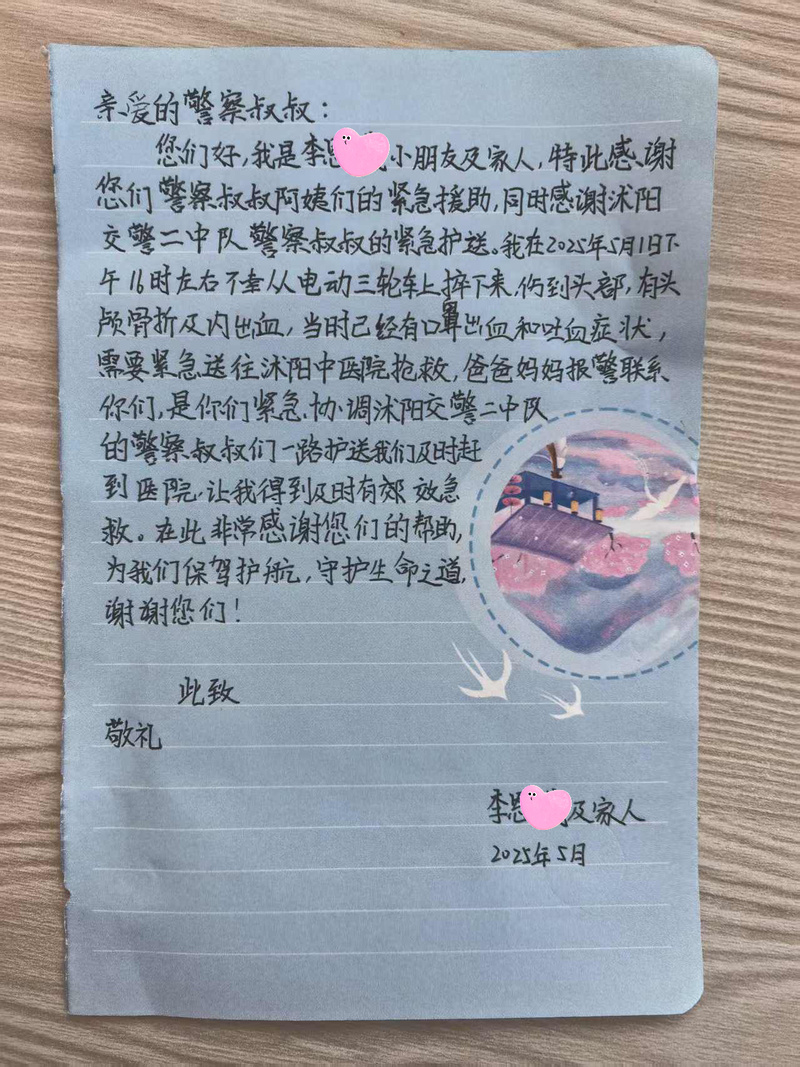 亲爱的警察叔叔：
您们好，我是李思小朋友及家人，特此感谢
您们警察叔叔阿姨们的紧急援助，同时感谢沭阳
交警二中队警察叔叔的紧急护送。我在2025年5月1日下
午16时左右不幸从电动三轮车上摔下来，伤到头部，有头
颅骨折及内出血，当时已经有口鼻出血和吐血症状，
需要紧急送往沭阳中医院抢救，爸爸妈妈报警联系
你们，是你们紧急协调沭阳交警二中队
的警察叔叔们一路护送我们及时赶
到医院，让我得到及时有效急
救。在此非常感谢您们的帮助，
为我们保驾护航，守护生命之道，
谢谢您们！
此致
敬礼
李思及家人
2025年5月